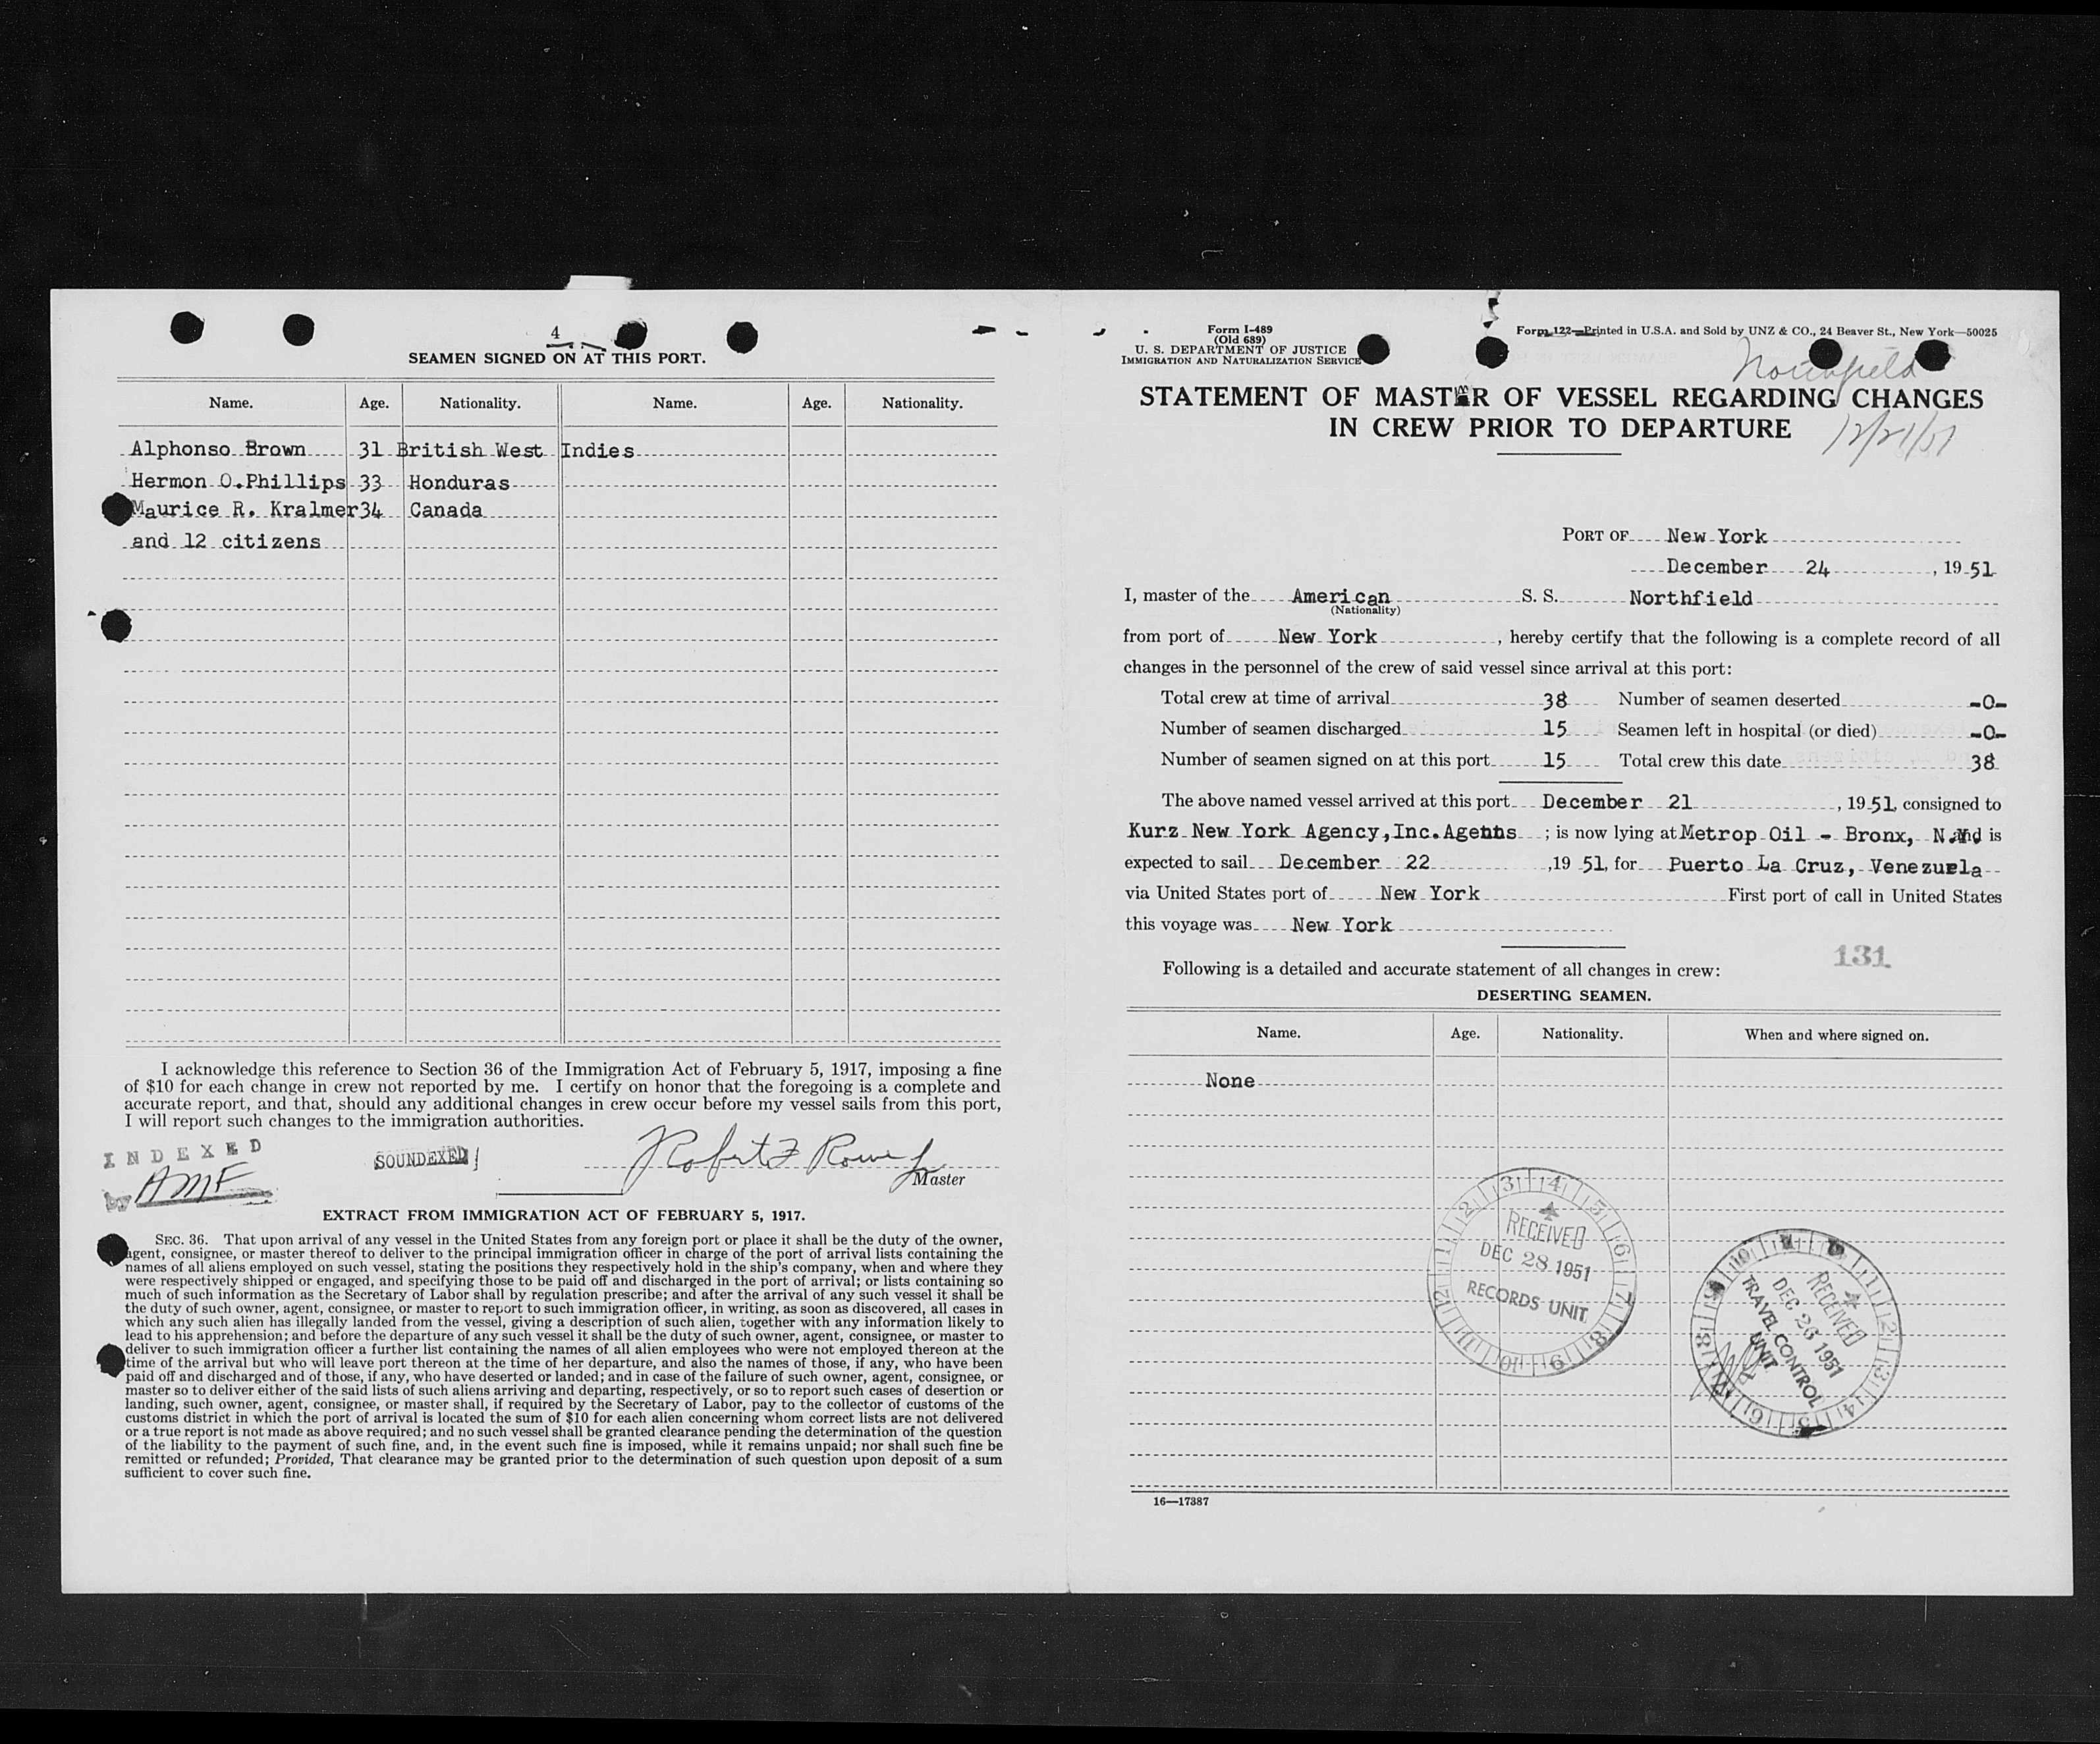 4
SEAMEN SIGNED ON AT THIS PORT.
Name. Age. Nationality. Name. Age. Nationality.
Alphonso Brown 31 British West Indies
Hermon O.Phillips 33 Honduras
Maurice R. Kralmer 34 Canada
and 12 citizens
I acknowledge this reference to Section 36 of the Immigration Act of February 5, 1917, imposing a fine
of $10 for each change in crew not reported by me. I certify on honor that the foregoing is a complete and
accurate report, and that, should any additional changes in crew occur before my vessel sails from this port,
I will report such changes to the immigration authorities.
INDEXED
by AMF
SOUNDEXED
Robert F Rowe Jr
Master
EXTRACT FROM IMMIGRATION ACT OF FEBRUARY 5, 1917.
SEC. 36. That upon arrival of any vessel in the United States from any foreign port or place it shall be the duty of the owner,
agent, consignee, or master thereof to deliver to the principal immigration officer in charge of the port of arrival lists containing the
names of all aliens employed on such vessel, stating the positions they respectively hold in the ship's company, when and where they
were respectively shipped or engaged, and specifying those to be paid off and discharged in the port of arrival; or lists containing so
much of such information as the Secretary of Labor shall by regulation prescribe; and after the arrival of any such vessel it shall be
the duty of such owner, agent, consignee, or master to report to such immigration officer, in writing, as soon as discovered, all cases in
which any such alien has illegally landed from the vessel, giving a description of such alien, together with any information likely to
lead to his apprehension; and before the departure of any such vessel it shall be the duty of such owner, agent, consignee, or master to
deliver to such immigration officer a further list containing the names of all alien employees who were not employed thereon at the
time of the arrival but who will leave port thereon at the time of her departure, and also the names of those, if any, who have been
paid off and discharged and of those, if any, who have deserted or landed; and in case of the failure of such owner, agent, consignee, or
master so to deliver either of the said lists of such aliens arriving and departing, respectively, or so to report such cases of desertion or
landing, such owner, agent, consignee, or master shall, if required by the Secretary of Labor, pay to the collector of customs of the
customs district in which the port of arrival is located the sum of $10 for each alien concerning whom correct lists are not delivered
or a true report is not made as above required; and no such vessel shall be granted clearance pending the determination of the question
of the liability to the payment of such fine, and, in the event such fine is imposed, while it remains unpaid; nor shall such fine be
remitted or refunded; Provided, That clearance may be granted prior to the determination of such question upon deposit of a sum
sufficient to cover such fine.
Form I-489
(Old 689)
U. S. DEPARTMENT OF JUSTICE
IMMIGRATION AND NATURALIZATION SERVICE
Form 122—Printed in U.S.A. and Sold by UNZ & CO., 24 Beaver St., New York—50025
Northfield
STATEMENT OF MASTER OF VESSEL REGARDING CHANGES
IN CREW PRIOR TO DEPARTURE
12/21/51
PORT OF New York
December 24, 1951
I, master of the American S. S. Northfield
(Nationality)
from port of New York, hereby certify that the following is a complete record of all
changes in the personnel of the crew of said vessel since arrival at this port:
Total crew at time of arrival 38 Number of seamen deserted -0-
Number of seamen discharged 15 Seamen left in hospital (or died) -0-
Number of seamen signed on at this port 15 Total crew this date 38
The above named vessel arrived at this port December 21, 1951, consigned to
Kurz New York Agency,Inc.Agents; is now lying at Metrop Oil - Bronx, N.Y. and is
expected to sail December 22, 1951, for Puerto La Cruz, Venezuela
via United States port of New York First port of call in United States
this voyage was New York
131
Following is a detailed and accurate statement of all changes in crew:
DESERTING SEAMEN.
Name. Age. Nationality. When and where signed on.
None
1 2 3 4 5 6 7 8 9 10 11 12
RECEIVED
DEC 28 1951
RECORDS UNIT
RECEIVED
DEC 26 1951
TRAVEL CONTROL
UNIT
16—17387